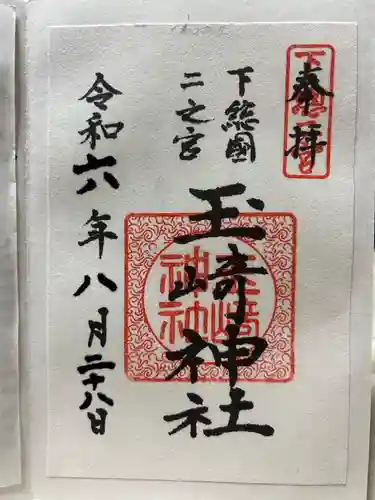 奉拝
下總二宮
下総國
二之宮
玉崎神社
玉崎神社
令和六年八月二十八日